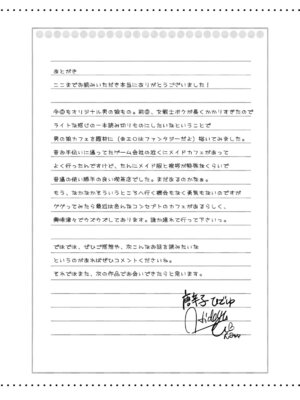 あとがき
ここまでお読みいただき本当にありがとうございました！
今回もオリジナル男の娘もの。前回、女戦士ボクが長くかかりすぎたので
ライトな感じの一本読み切りものにしたいなということで
男の娘カフェを題材に（※エロはファンタジーだよ）描いてみました。
昔お手伝いに通ってたゲーム会社の近くにメイドカフェがあって
よく行ったんですけど、たんにメイド服と挨拶が特殊なくらいで
普通の使い勝手の良い喫茶店でした。まだあるのかなぁ。
もう、なかなかそういうところへ行く機会もなく勇気もないのですが
ググってみたら最近は色んなコンセプトのカフェがあるらしく、
興味津々でウズウズしております。誰か連れて行って下さいっ。
ではでは、ぜひご感想や、次こんなお話を読みたいな
というのがあればぜひコメントくださいね。
それではまた、次の作品でお会いできたらと思います。
唐辛子ひでゆ